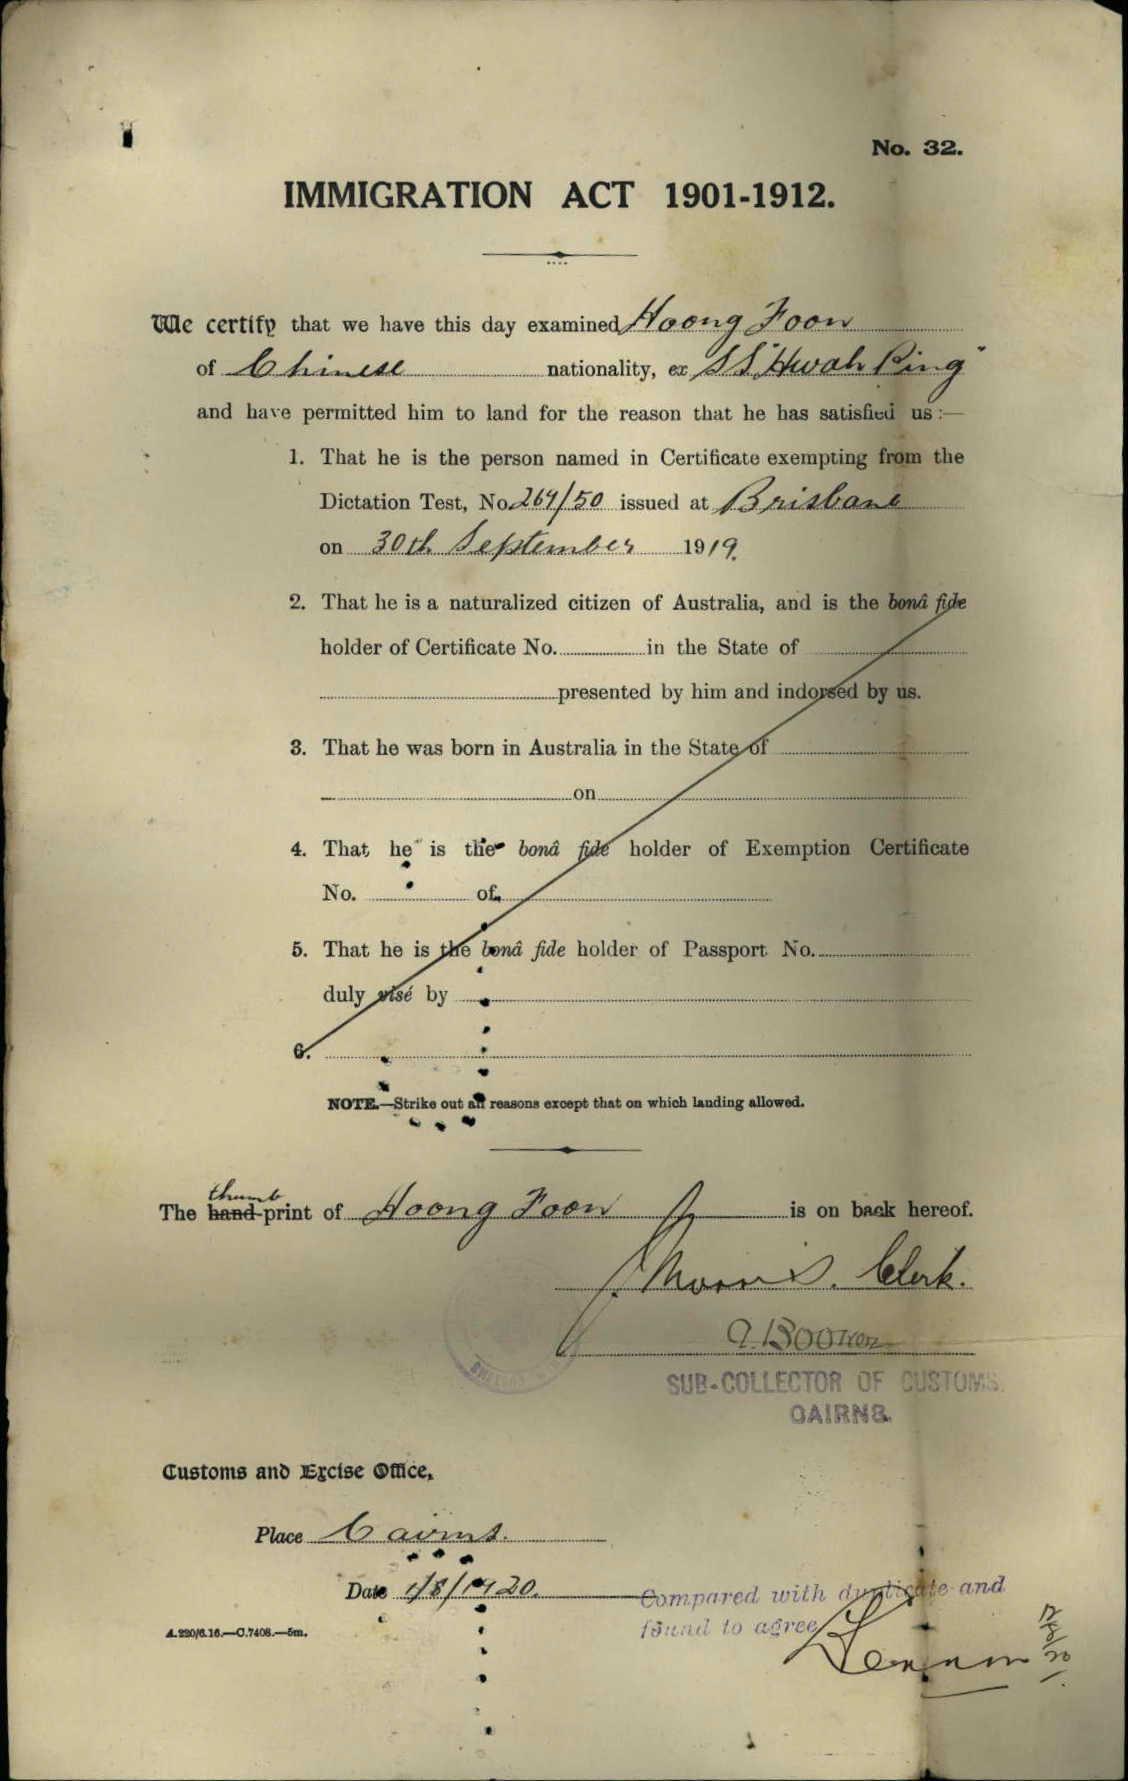 No. 32.
IMMIGRATION ACT 1901-1912.
We certify that we have this day examined Hoong Foon
of Chinese nationality, ex S.S. "Hwah Ping"
and have permitted him to land for the reason that he has satisfied us :—
1. That he is the person named in Certificate exempting from the
Dictation Test, No. 264/50 issued at Brisbane
on 30th September 1919.
2. That he is a naturalized citizen of Australia, and is the bonâ fide
holder of Certificate No. in the State of
presented by him and indorsed by us.
3. That he was born in Australia in the State of
on
4. That he is the bonâ fide holder of Exemption Certificate
No. of
5. That he is the bonâ fide holder of Passport No.
duly visé by
6.
NOTE.—Strike out all reasons except that on which landing allowed.
thumb
The hand-print of Hoong Foon is on back hereof.
J. Morris. Clerk.
SUB-COLLECTOR OF CUSTOMS.
CAIRNS.
Customs and Excise Office,
Place Cairns.
Date 1/8/1920.
Compared with duplicate and
found to agree
A.220/6.16.—C.7408.—5m.